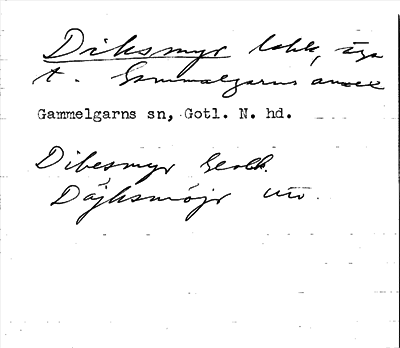 Diksmyr lokk, äga
t. Gammelgarns annex
Gammelgarns sn, Gotl. N. hd.
Dibesmyr Geolk.
Däjksmöjr uo.